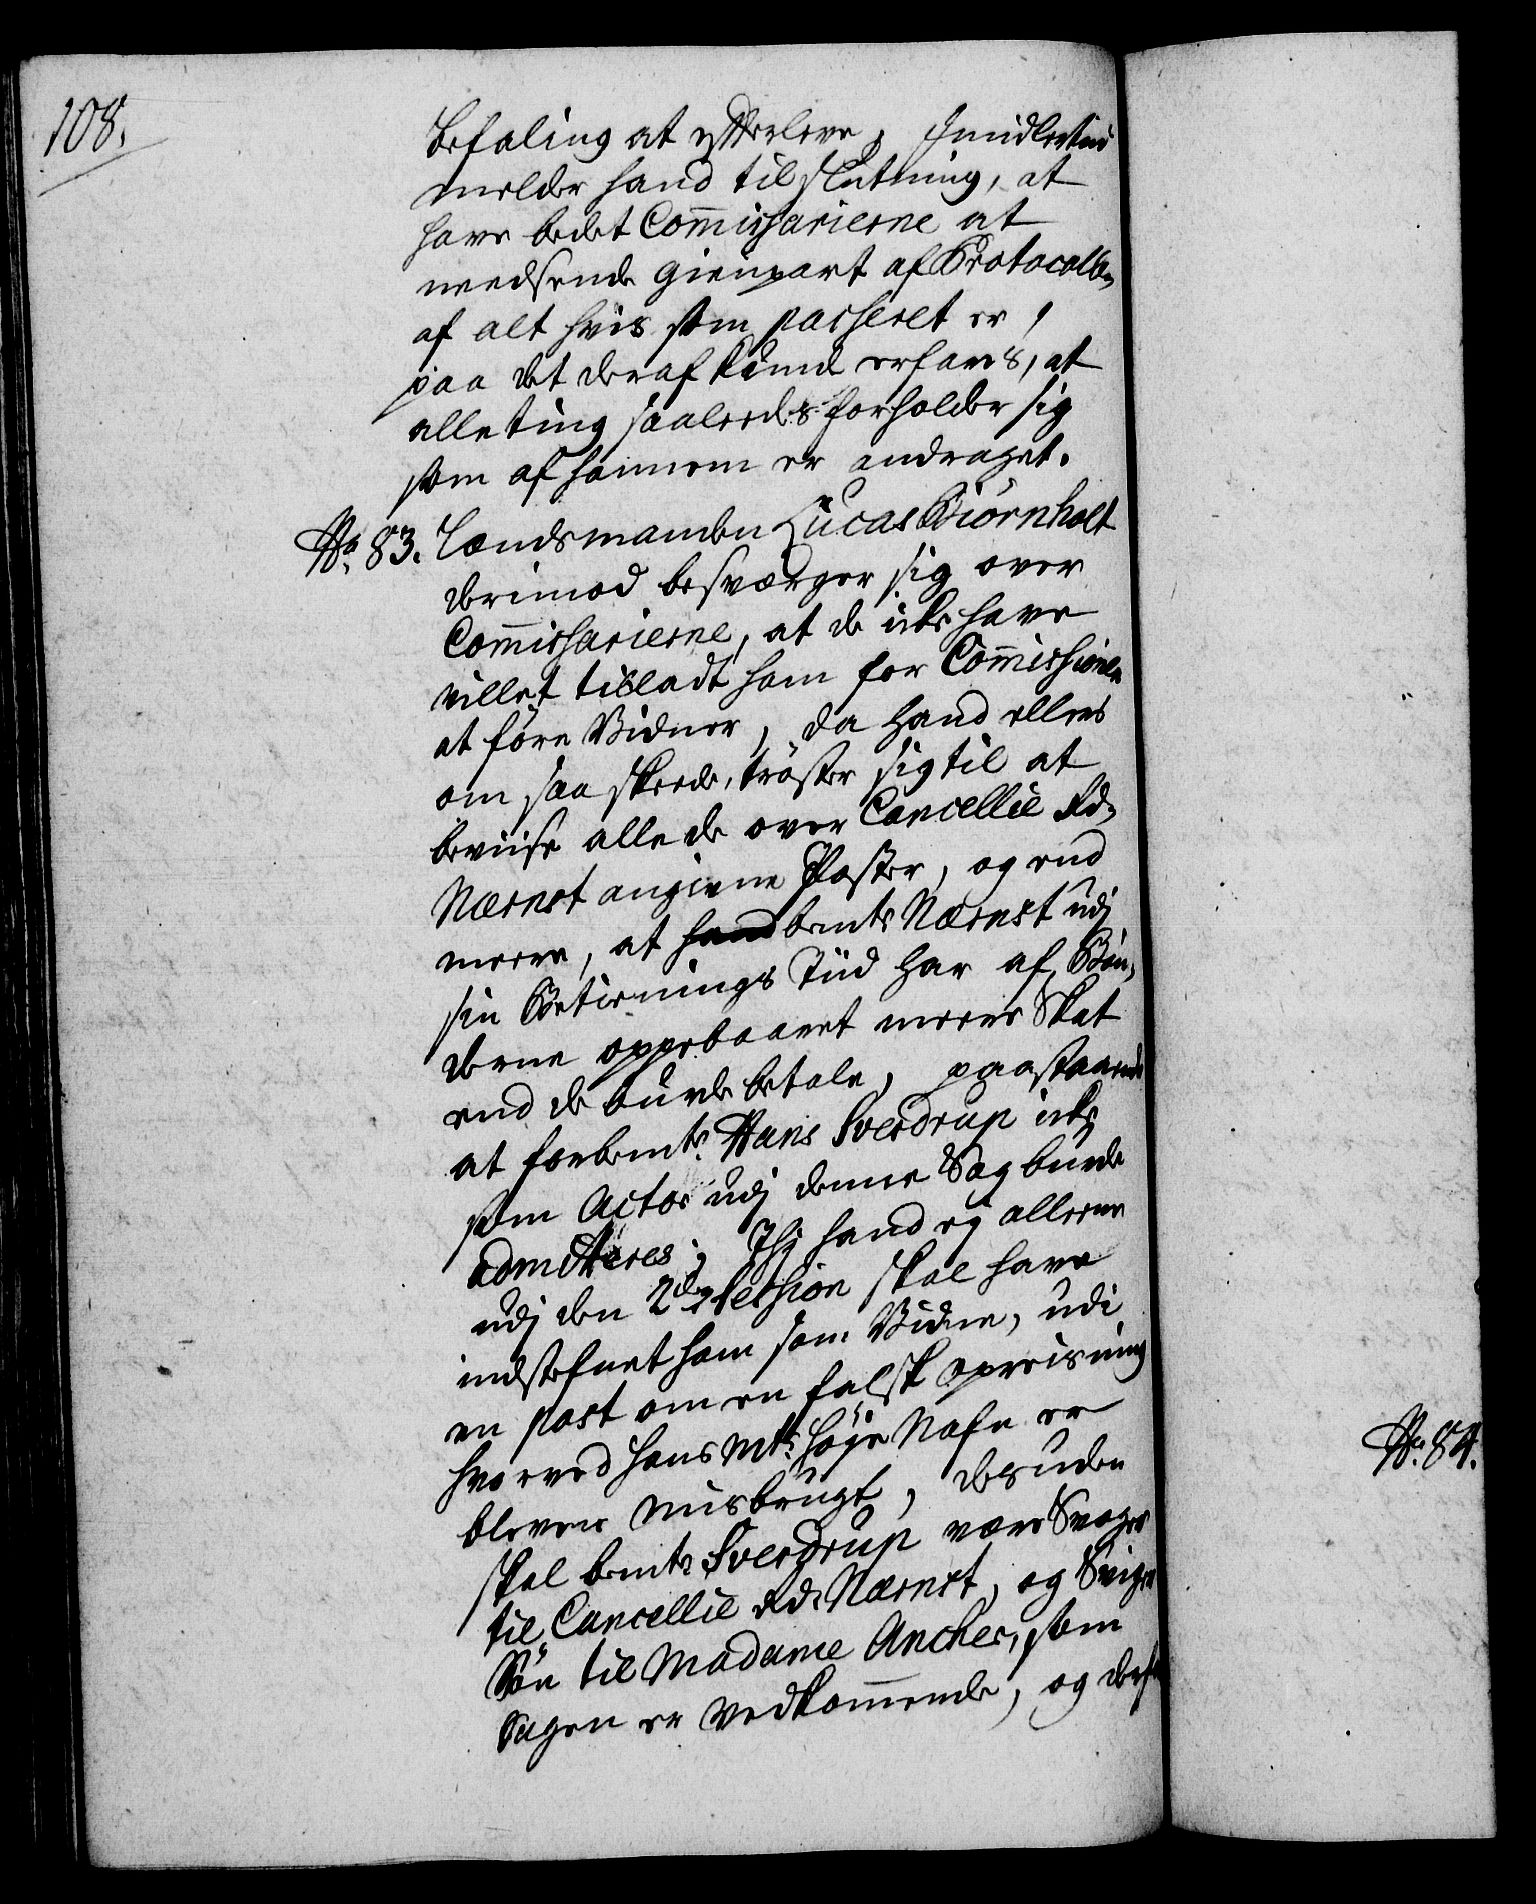 108.
befaling at efterleve, Imidlertid
melder hand til slutning, at
have bedet Commissarierne at
needsende gienpart af Protocollen
af alt hvis som passeret er,
paa det deraf kunde erfares, at
alleting saaledes forholder sig
som af hannem er andraget.
No. 83. Lændsmanden Lucas Biørnholt
derimod besværger sig over
Commissarierne, at de icke have
villet tilladt ham for Commissionen
at føre Vidner, da hand ellers
om saa skeede, trøster sig til at
beviise alle de over Cancellie Rd.
Nærnst angivne Poster, og end
meere, at hand bemte Nærnst udj
sin Betienings Tiid har af Bøn,
derne oppebaaret meere Skat
end de burde betale, paastaaende
at forbemte Hans Sverdrup icke
som Actor udj denne Sag burde
admitteres; Thj hand ej alleene
udj den 2den Session skal have
indstefnet ham som Vidne, udi
en post om en falsk opreisning
hvorved Hans Mts høje Nafn er
bleven misbrugt, desuden
skal bemte Sverdrup være Svoger
til Cancellie Rd. Nærnst, og Sviger
Søn til Madame Ancher, som
Sagen er vedkommende, og
No. 84.